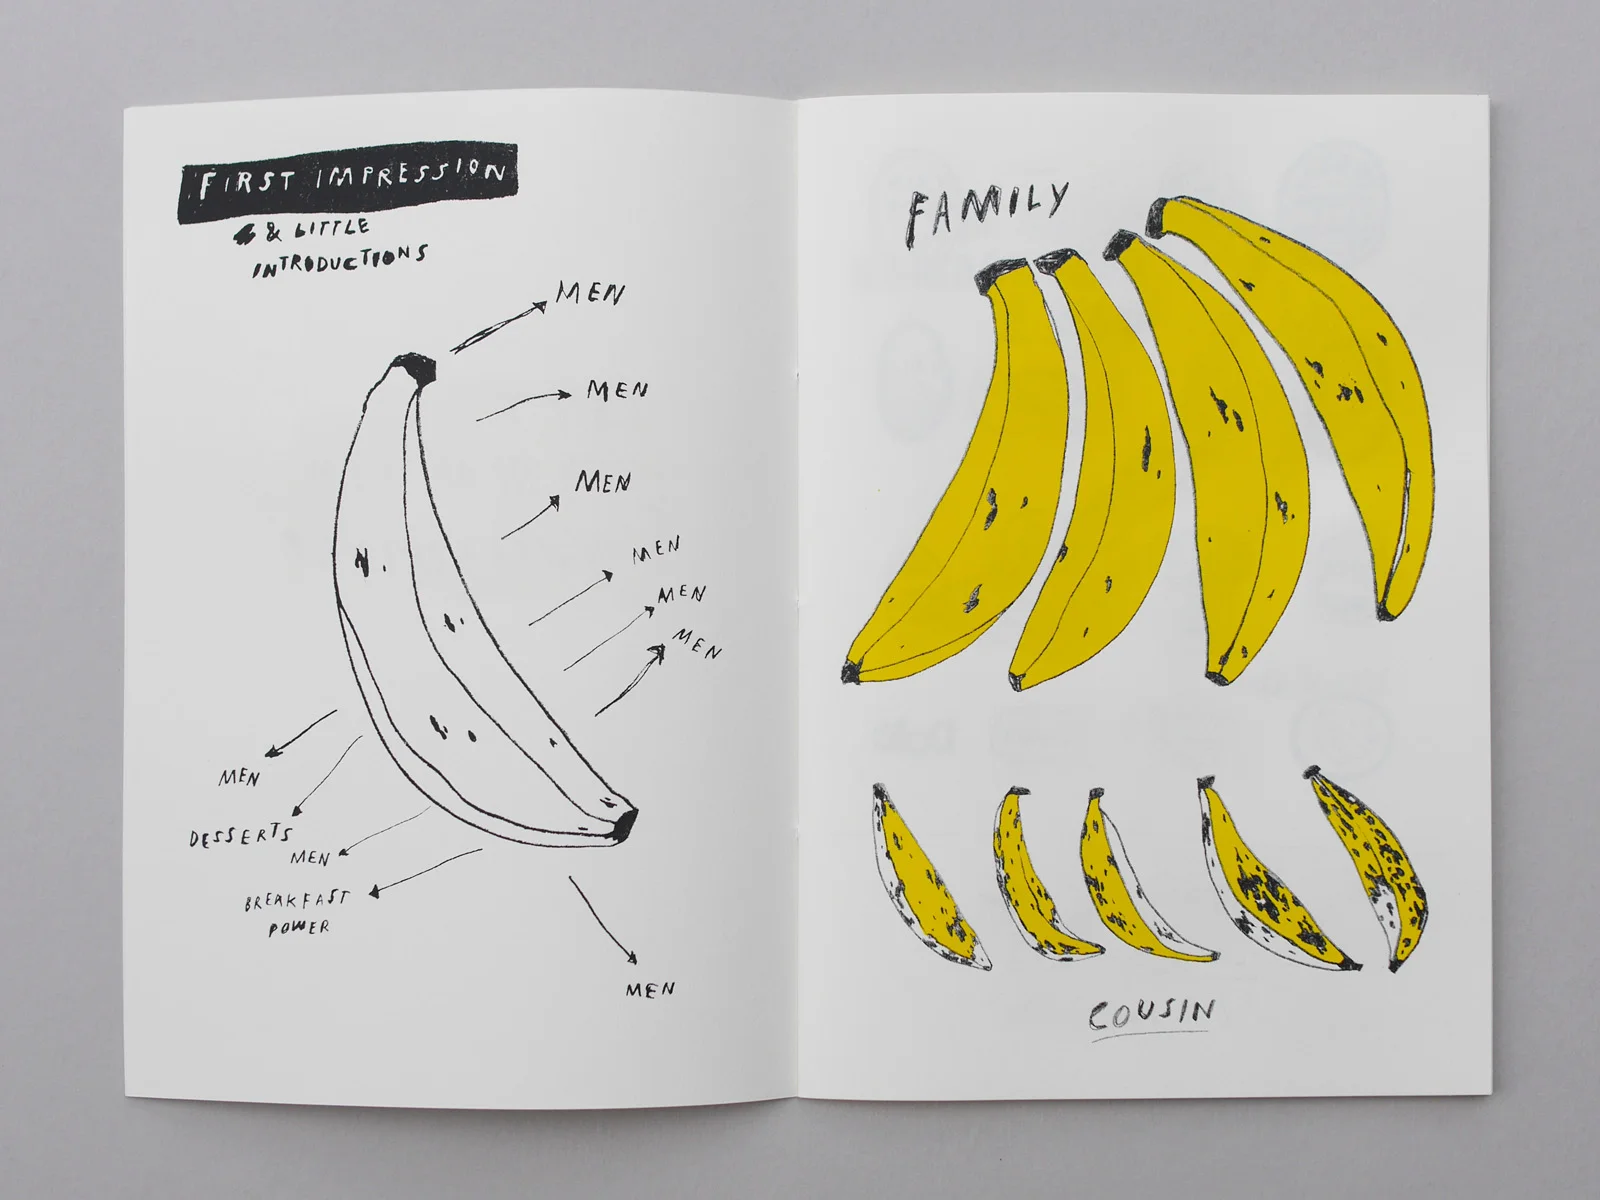 FIRST IMPRESSION
& LITTLE
INTRODUCTIONS
MEN
MEN
MEN
MEN
MEN
MEN
MEN
DESSERTS
MEN
BREAKFAST
POWER
MEN
FAMILY
COUSIN